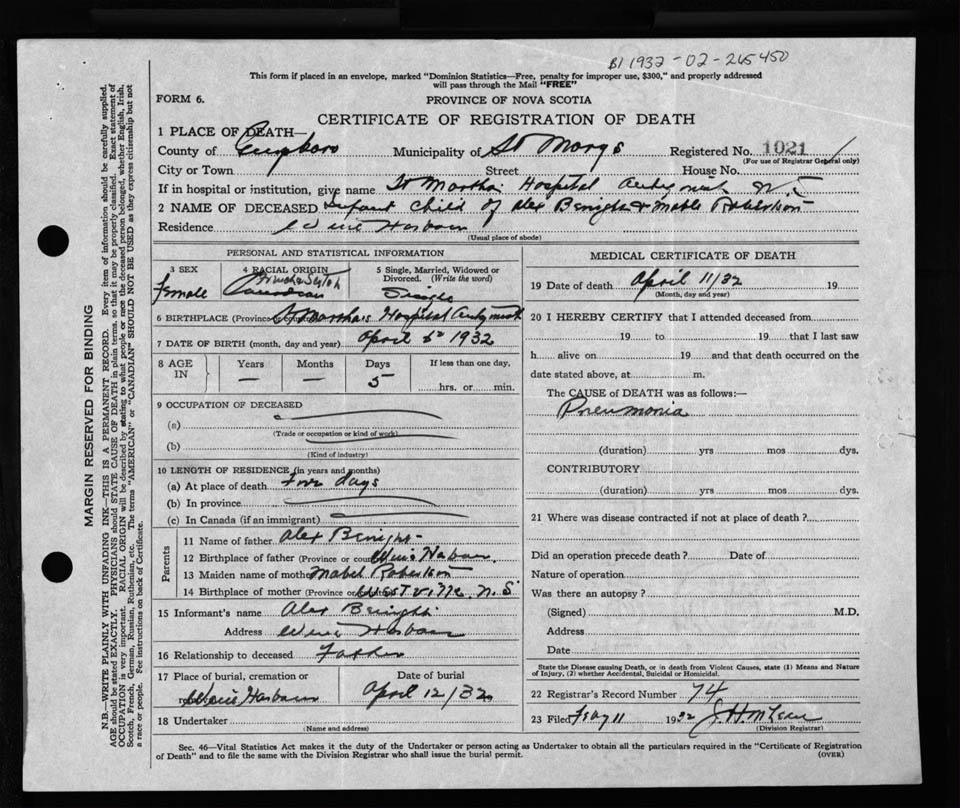 B1 1932-02-265450
This form if placed in an envelope, marked "Dominion Statistics—Free, penalty for improper use, $300," and properly addressed
will pass through the Mail "FREE"
FORM 6.
PROVINCE OF NOVA SCOTIA
CERTIFICATE OF REGISTRATION OF DEATH
1 PLACE OF DEATH—
County of Municipality of St Marys Registered No. 1021
(For use of Registrar General only)
City or Town Street House No.
If in hospital or institution, give name St Martha's Hospital N.S
2 NAME OF DECEASED Infant Child of Alex & Mable Robertson
Residence
(Usual place of abode)
PERSONAL AND STATISTICAL INFORMATION
3 SEX
female
4 RACIAL ORIGIN
Canadian
5 Single, Married, Widowed or Divorced. (Write the word)
Single
6 BIRTHPLACE (Province or country) St Martha's Hospital
7 DATE OF BIRTH (month, day and year) April 1932
8 AGE IN
Years Months Days If less than one day,
— — 5 hrs. or min.
9 OCCUPATION OF DECEASED
(a)
(Trade or occupation or kind of work)
(b)
(Kind of industry)
10 LENGTH OF RESIDENCE (in years and months)
(a) At place of death days
(b) In province
(c) In Canada (if an immigrant)
Parents
11 Name of father Alex
12 Birthplace of father (Province or
13 Maiden name of mother Mabel Robertson
14 Birthplace of mother (Province or Westville N.S.
15 Informant's name Alex
Address
16 Relationship to deceased Father
17 Place of burial, cremation or
Date of burial
April 12/32
18 Undertaker
(Name and address)
MEDICAL CERTIFICATE OF DEATH
19 Date of death April 11/32 19
(Month, day and year)
20 I HEREBY CERTIFY that I attended deceased from
19 to 19 that I last saw
h alive on 19 and that death occurred on the
date stated above, at m.
The CAUSE of DEATH was as follows:—
Pneumonia
(duration) yrs mos dys.
CONTRIBUTORY
(duration) yrs mos dys.
21 Where was disease contracted if not at place of death?
Did an operation precede death? Date of
Nature of operation
Was there an autopsy?
(Signed) M.D.
Address
Date
State the Disease causing Death, or in death from Violent Causes, state (1) Means and Nature of Injury, (2) whether Accidental, Suicidal or Homicidal.
22 Registrar's Record Number 74
23 Filed 11 1932
(Division Registrar)
Sec. 46—Vital Statistics Act makes it the duty of the Undertaker or person acting as Undertaker to obtain all the particulars required in the "Certificate of Registration
of Death" and to file the same with the Division Registrar who shall issue the burial permit. (OVER)
MARGIN RESERVED FOR BINDING
N.B.—WRITE PLAINLY WITH UNFADING INK—THIS IS A PERMANENT RECORD. Every item of information should be carefully supplied.
AGE should be stated EXACTLY. PHYSICIANS should STATE CAUSE OF DEATH in plain terms, so that it may be properly classified. Exact statement of
OCCUPATION is very important. RACIAL ORIGIN will be described by stating to what people or race the deceased person belonged, whether English, Irish,
Scotch, French, German, Russian, Ruthenian, etc. The terms "AMERICAN" or "CANADIAN" SHOULD NOT BE USED as they express citizenship but not
a race or people. See instructions on back of Certificate.